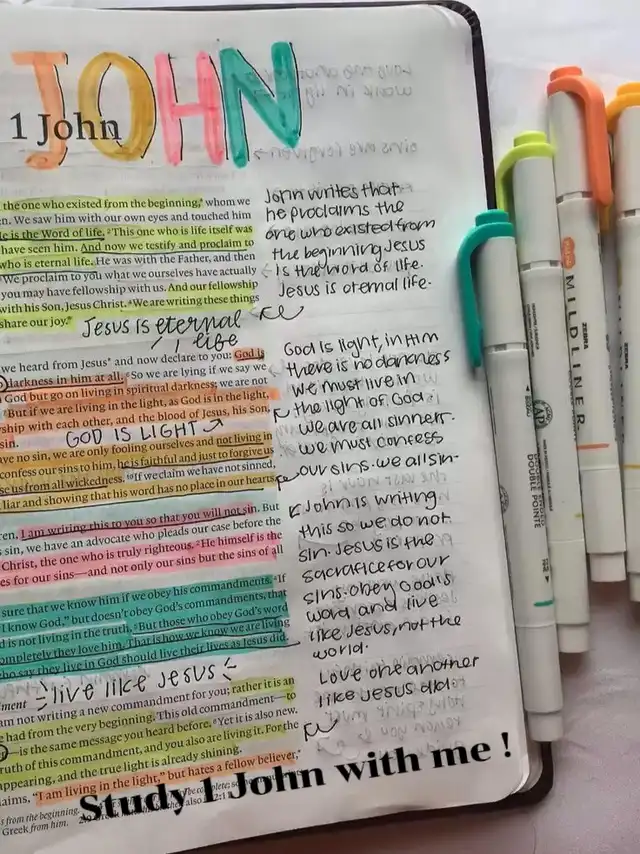 JOHN
1 John
the one who existed from the beginning, whom we
en. We saw him with our own eyes and touched him
He is the Word of life. 2This one who is life itself was
have seen him. And now we testify and proclaim to
who is eternal life. He was with the Father, and then
We proclaim to you what we ourselves have actually
you may have fellowship with us. And our fellowship
with his Son, Jesus Christ. 4We are writing these things
share our joy.
Jesus is eternal
life
we heard from Jesus* and now declare to you: God is
darkness in him at all. 6So we are lying if we say we
God but go on living in spiritual darkness; we are not
But if we are living in the light, as God is in the light,
wship with each other, and the blood of Jesus, his Son,
sin.
GOD IS LIGHT
ave no sin, we are only fooling ourselves and not living in
confess our sins to him, he is faithful and just to forgive us
se us from all wickedness. 10If we claim we have not sinned,
liar and showing that his word has no place in our hearts.
ren, I am writing this to you so that you will not sin. But
sin, we have an advocate who pleads our case before the
Christ, the one who is truly righteous. 2He himself is the
es for our sins—and not only our sins but the sins of all
sure that we know him if we obey his commandments. 4If
know God," but doesn't obey God's commandments, that
d is not living in the truth. 5But those who obey God's word
ompletely they love him. That is how we know we are living
who say they live in God should live their lives as Jesus did.
live like Jesus
ment
am not writing a new commandment for you; rather it is an
had from the very beginning. This old commandment—to
—is the same message you heard before. 8Yet it is also new.
ruth of this commandment, and you also are living it. For the
appearing, and the true light is already shining.
aims, "I am living in the light," but hates a fellow believer,
s from the beginning.
Greek from him.
John writes that
he proclaims the
one who existed from
the beginning Jesus
is the word of life.
Jesus is eternal life.
God is light, in Him
there is no darkness
we must live in
the light of God
we are all sinners.
we must confess
our sins. we all sin.
John is writing
this so we do not
sin. Jesus is the
sacrifice for our
sins. obey God's
word and live
like Jesus, not the
world.
Love one another
like Jesus did.
Study 1 John with me !
MILDLINER
ZEBRA
ZEBRA
DOUBLE POINTE